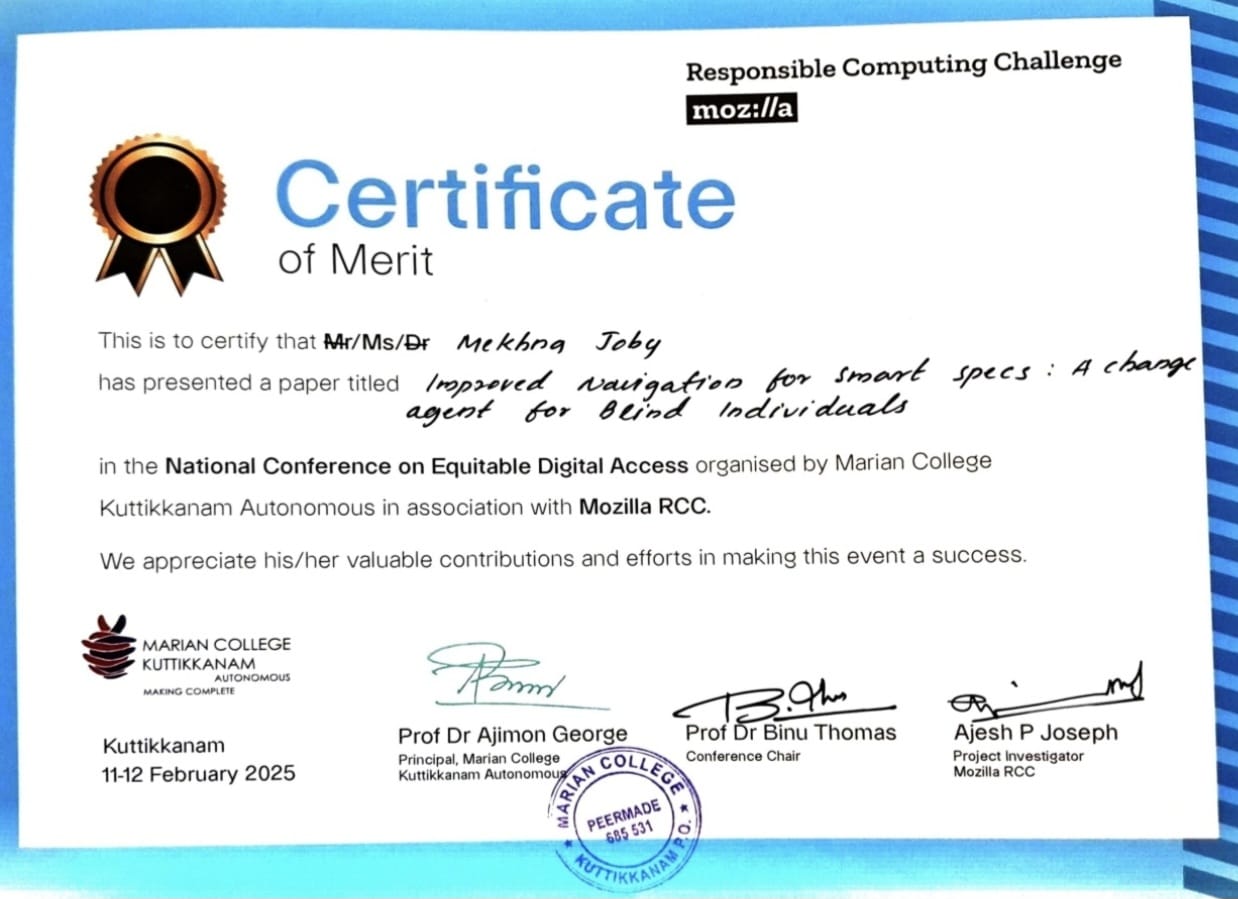 Responsible Computing Challenge
moz://a
Certificate
of Merit
This is to certify that Mr/Ms/Dr Mekhna Joby
has presented a paper titled Improved Navigation for smart specs : A change
agent for Blind Individuals
in the National Conference on Equitable Digital Access organised by Marian College
Kuttikkanam Autonomous in association with Mozilla RCC.
We appreciate his/her valuable contributions and efforts in making this event a success.
MARIAN COLLEGE
KUTTIKKANAM
AUTONOMOUS
MAKING COMPLETE
Kuttikkanam
11-12 February 2025
Prof Dr Ajimon George
Principal, Marian College
Kuttikkanam Autonomous
Prof Dr Binu Thomas
Conference Chair
Ajesh P Joseph
Project Investigator
Mozilla RCC
MARIAN COLLEGE
PEERMADE
685 531
KUTTIKKANAM P.O.